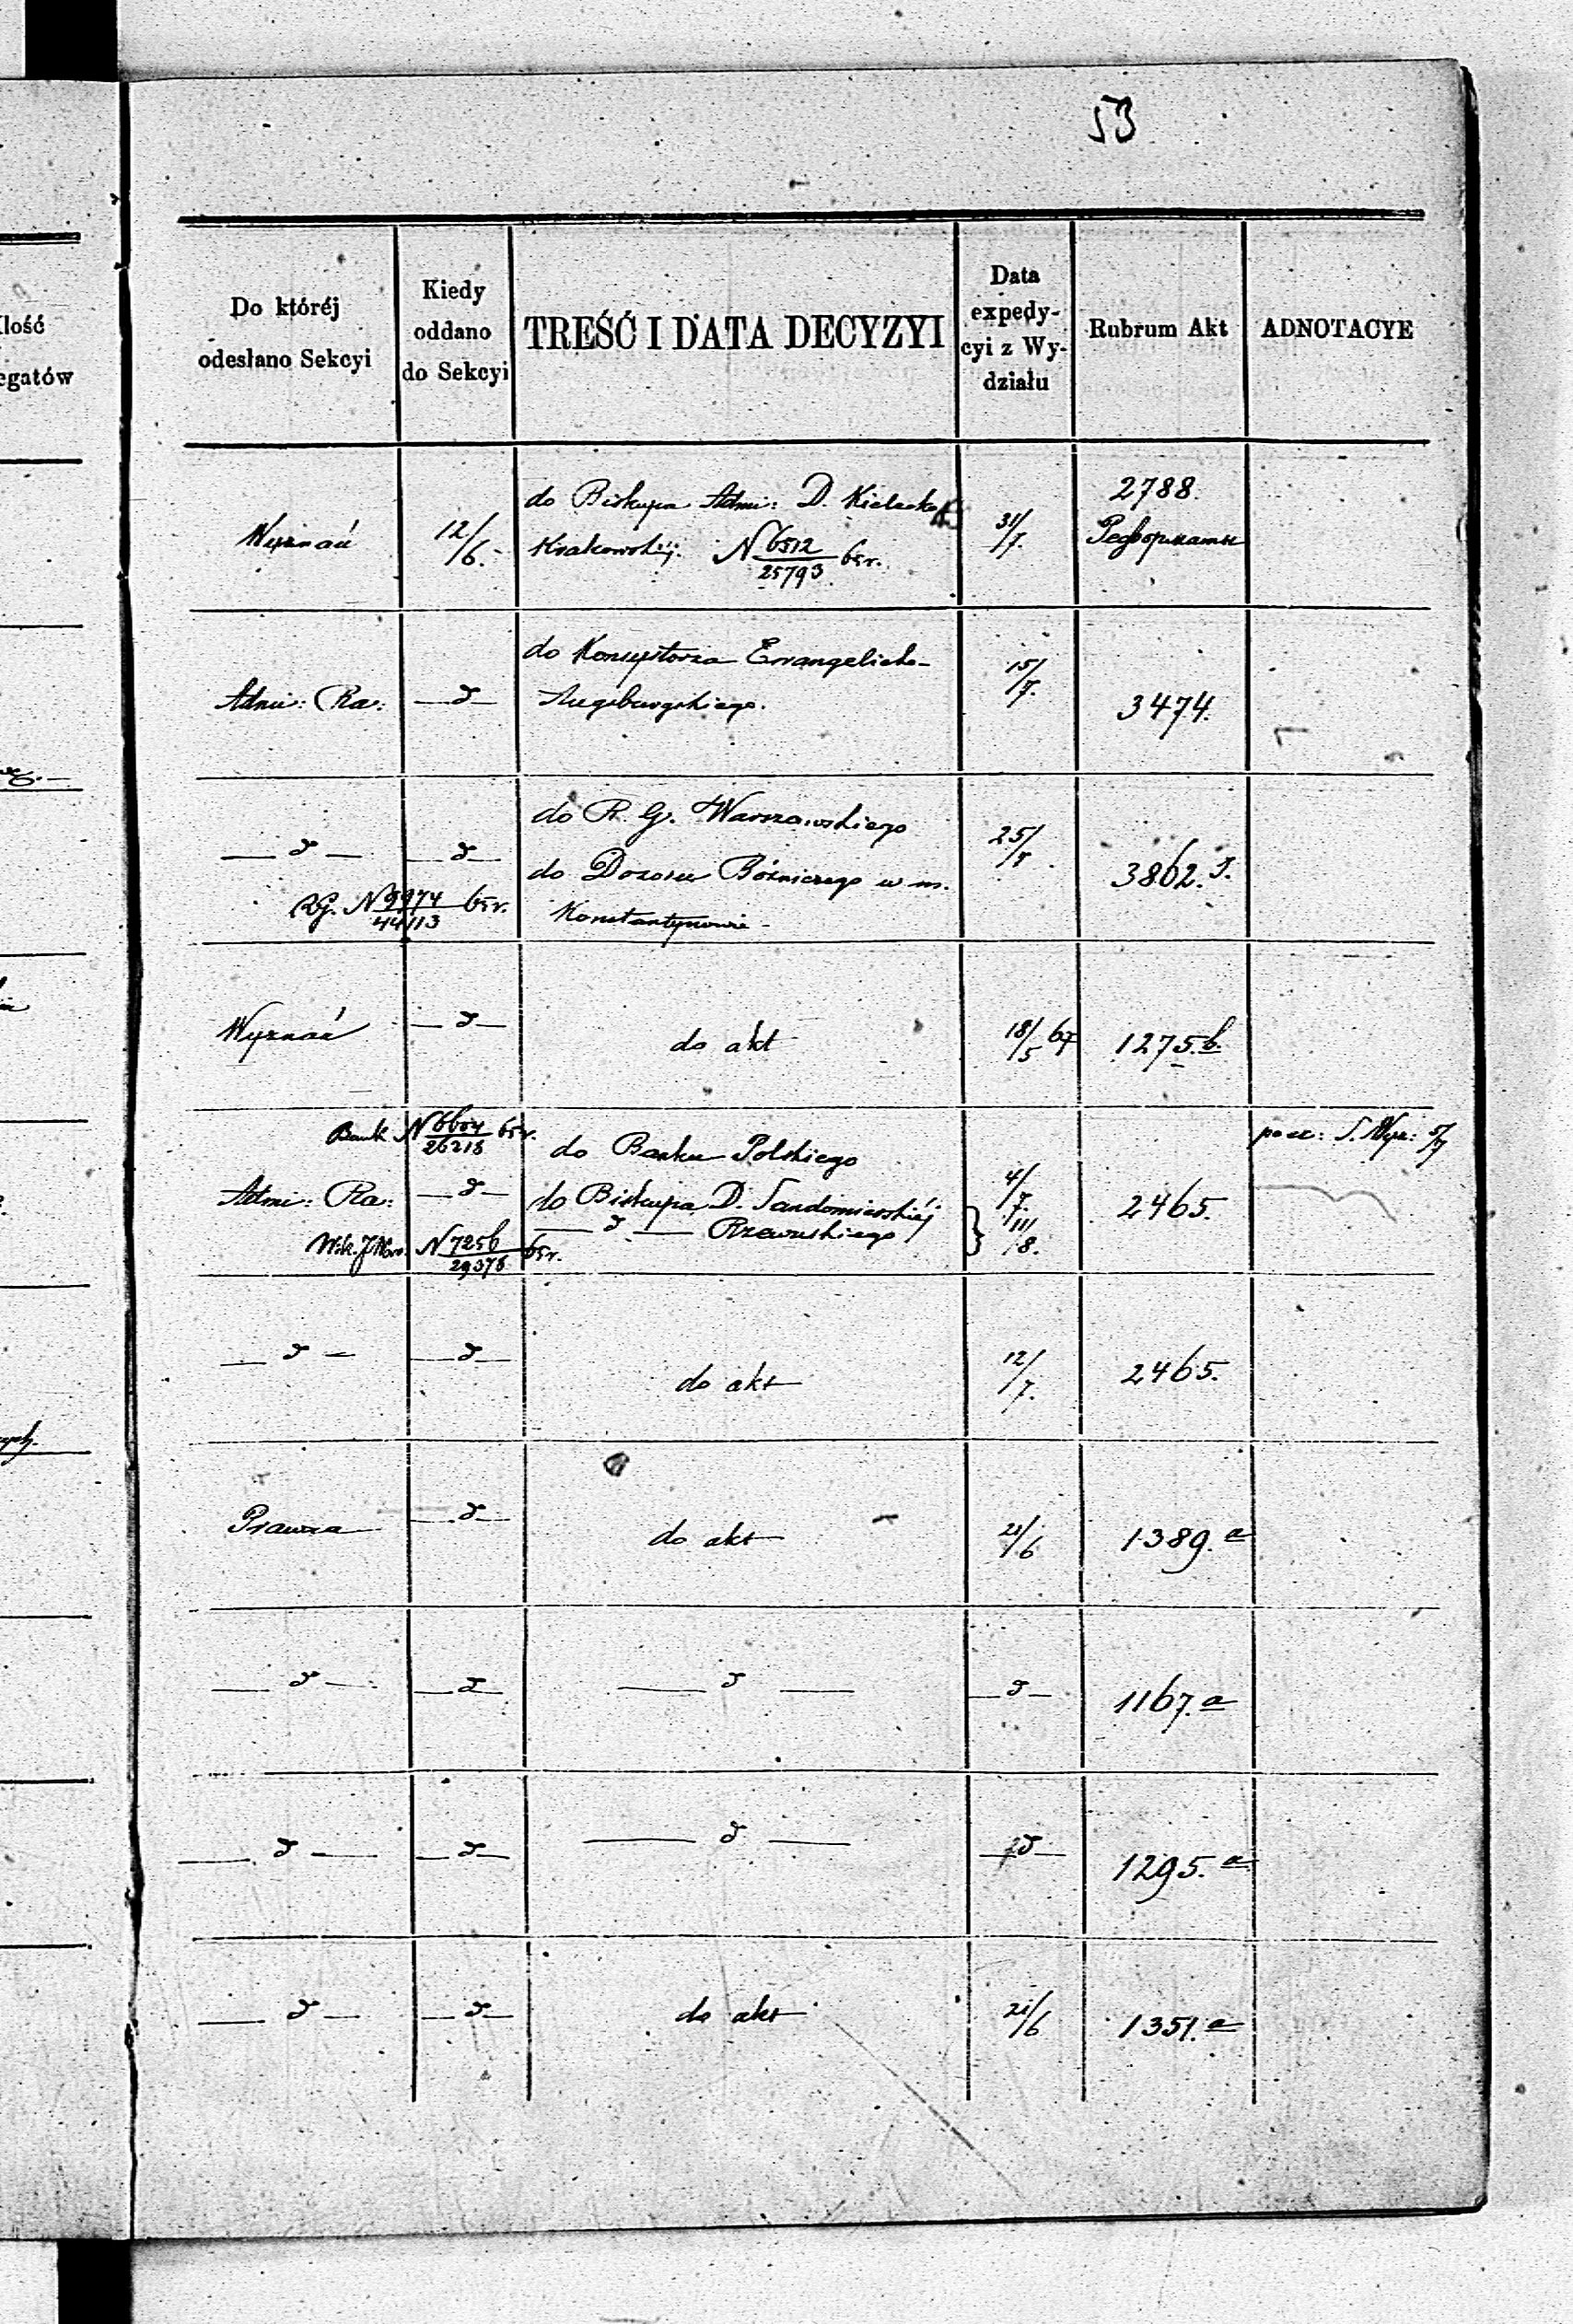 53
Ilość
egatów
Do któréj
odesłano Sekcyi
Kiedy
oddano
do Sekcyi
TREŚĆ I DATA DECYZYI
Data
expedy-
cyi z Wy-
działu
Rubrum Akt
ADNOTACYE
Wyznań
12/6.
do Biskupa Admi: D. Kielecko
Krakowskiéj. N 6512/25793 65r.
31/7.
2788.
Реформаты
Admi: Ra:
— d —
do Konsystorza Ewangelicko-
Augsburgskiego.
15/7.
3474.
— d —
— d —
RG. N 9974/44113 65r.
do R. G. Warszawskiego
do Dozoru Bóżniczego w m.
Konstantynowie
25/7.
3862.
Wyznań
— d —
do akt
18/5 67
1275.b.
Bank N 6604/26218 65r.
Admi: Ra:
— d —
N 7256/29376 65r.
do Banku Polskiego
do Biskupa D. Sandomierskiéj
— d — Rzewuskiego
4/7.
8.
2465.
— d —
— d —
do akt
12/7.
2465.
Prawna
— d —
do akt
21/6
1389.a
— d —
— d —
— d —
— d —
1167.a
— d —
— d —
— d —
— d —
1295.a
— d —
— d —
do akt
21/6
1351.a